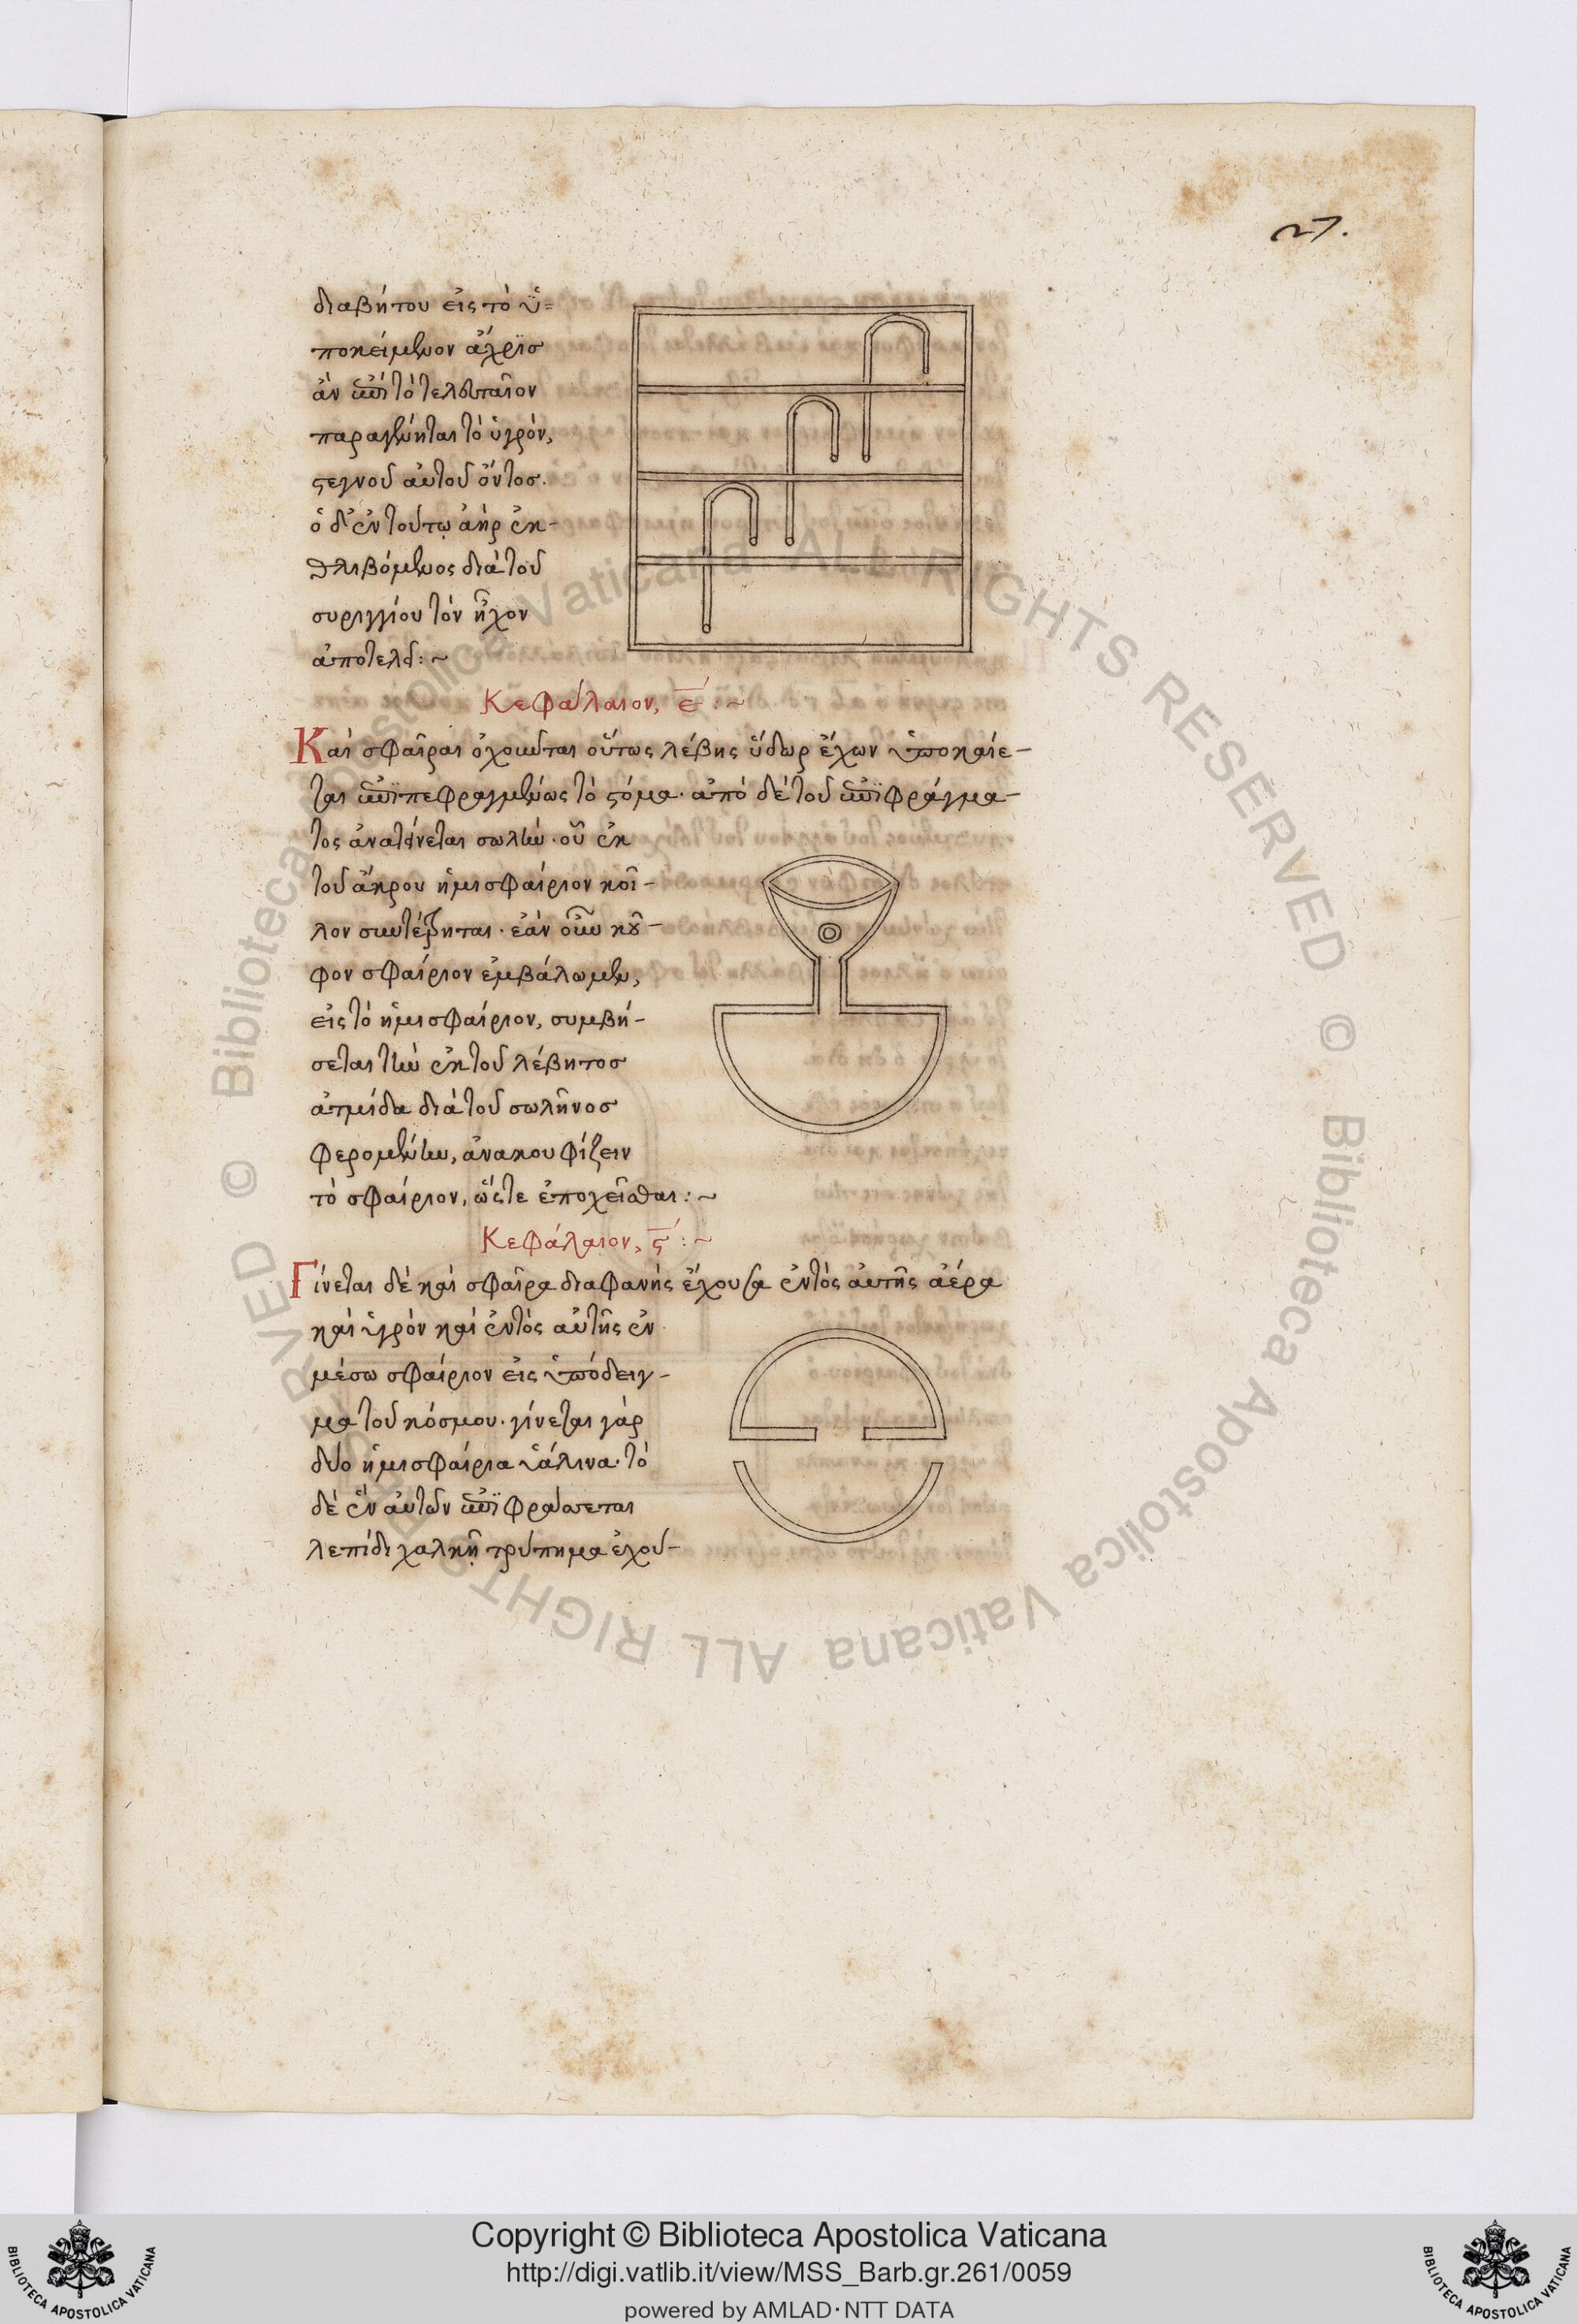 27.
διαβήτου εἰς τὸ ὑ=
ποκείμενον ἄχρϊσ
ἂν ἐπὶ τὸ τελευταῖον
παραγένηται τὸ ὑγρόν,
ϛεγνοῦ αὐτοῦ ὄντοσ.
ὁ δ' ἐν τούτῳ ἀὴρ ἐκ-
θλιβόμενος διὰ τοῦ
συριγγίου τὸν ἦχον
ἀποτελεῖ:~
Κεφάλαιον, ε̄:~
Καὶ σφαῖραι ὀχοῦνται οὕτως λέβης ὕδωρ ἔχων ὑποκαίε-
ται ἐπϊπεφραγμένως τὸ ϛόμα· ἀπὸ δὲ τοῦ ἐπϊφράγμα-
τος ἀνατείνεται σωλὴν· οὗ ἐκ
τοῦ ἄκρου ἡμισφαίριον κοῖ-
λον συντέτρηται· ἐὰν οὖν κοῦ-
φον σφαίριον ἐμβάλωμεν,
εἰς τὸ ἡμισφαίριον, συμβή-
σεται τὴν ἐκ τοῦ λέβητοσ
ἀτμίδα διὰ τοῦ σωλῆνοσ
φερομένην, ἀνακουφίζειν
τὸ σφαίριον, ὥϛτε ἐποχεῖσθαι:~
Κεφάλαιον, ϛ̄:~
Γίνεται δὲ καὶ σφαῖρα διαφανὴς ἔχουσα ἐντὸς αὐτῆς ἀέρα
καὶ ὑγρὸν καὶ ἐντὸς αὐτῆς ἐν
μέσω σφαίριον εἰς ὑπόδειγ-
μα τοῦ κόσμου· γίνεται γὰρ
δύο ἡμισφαίρια ὑάλινα· τὸ
δὲ ἓν αὐτῶν ἐπϊφράσσεται
λεπίδι χαλκῇ τρύπημα ἐχού-
© Biblioteca Apostolica Vaticana ALL RIGHTS RESERVED © Biblioteca Apostolica Vaticana ALL RIGHTS RESERVED
Copyright © Biblioteca Apostolica Vaticana
http://digi.vatlib.it/view/MSS_Barb.gr.261/0059
powered by AMLAD·NTT DATA
BIBLIOTECA APOSTOLICA VATICANA
BIBLIOTECA APOSTOLICA VATICANA